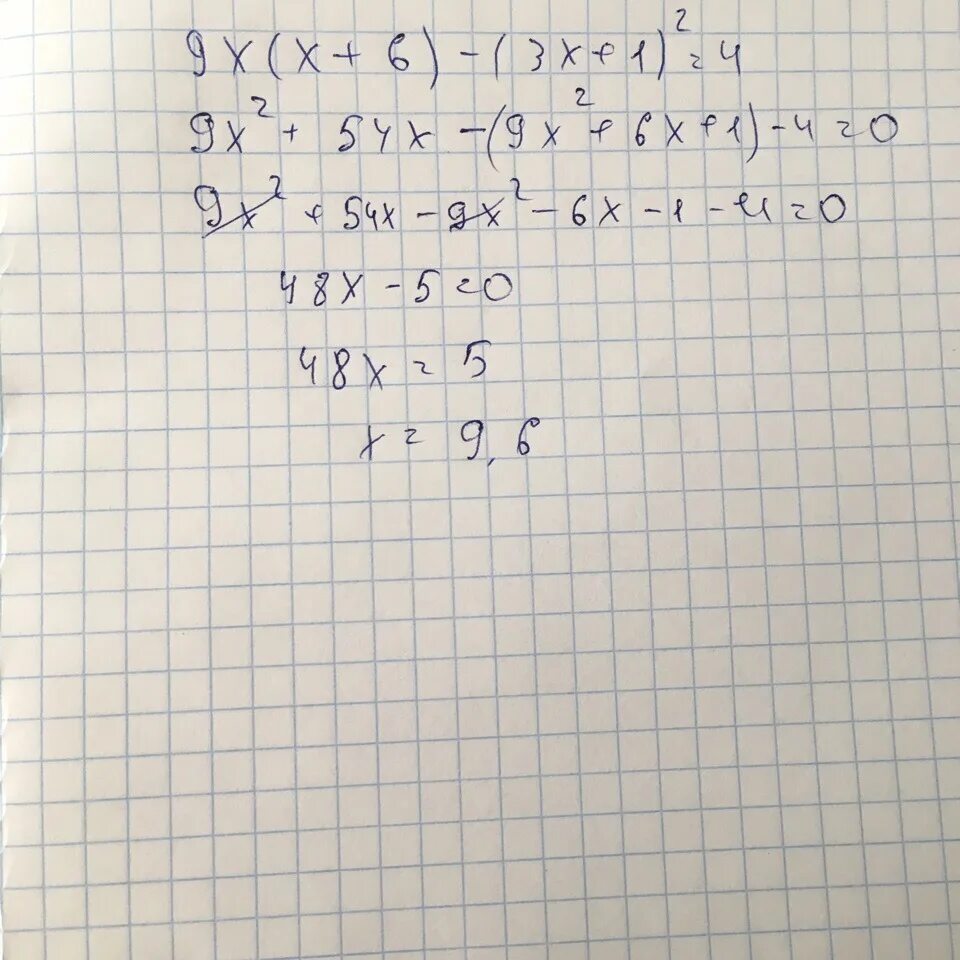 9x(x+6)-(3x+1)²=4
9x²+54x-(9x²+6x+1)-4=0
9x²+54x-9x²-6x-1-4=0
48x-5=0
48x=5
x=9,6